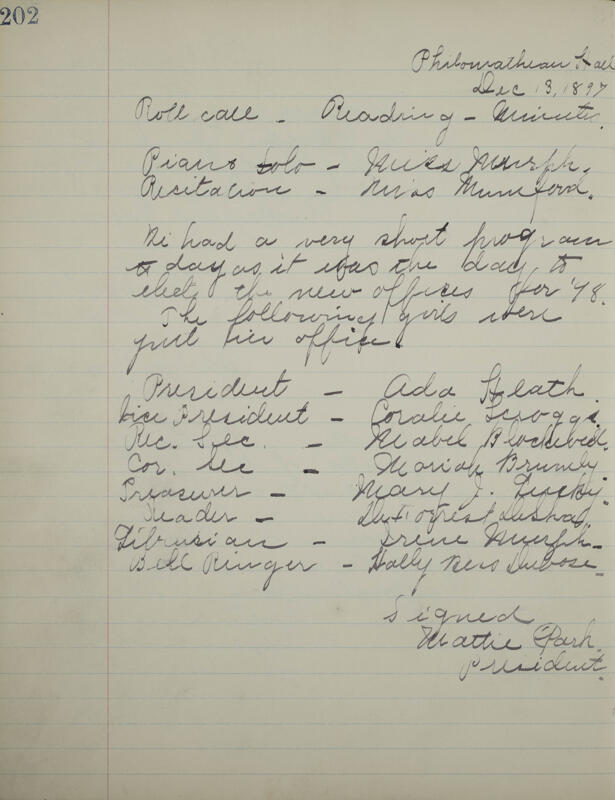 202
Philomathean Hall
Dec 13, 1897
Roll call - Reading - Minutes.
Piano Solo - Miss Murph.
Recitation - Miss Mumford.
We had a very short program
to day as it was the day to
elect the new offices for '98.
The following girls were
put in office.
President - Ada Heath
Vice President - Coralie Scroggs.
Rec. Sec. - Mabel
Cor. Sec - Marion Brumby.
Treasurer - Mary J.
Reader -
Librarian - Irene Murph -
Bell Ringer - Holly Dubose -
Signed
Mattie Park.
President.